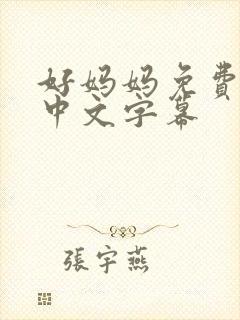 好妈妈免費
中文字幕
張宇燕